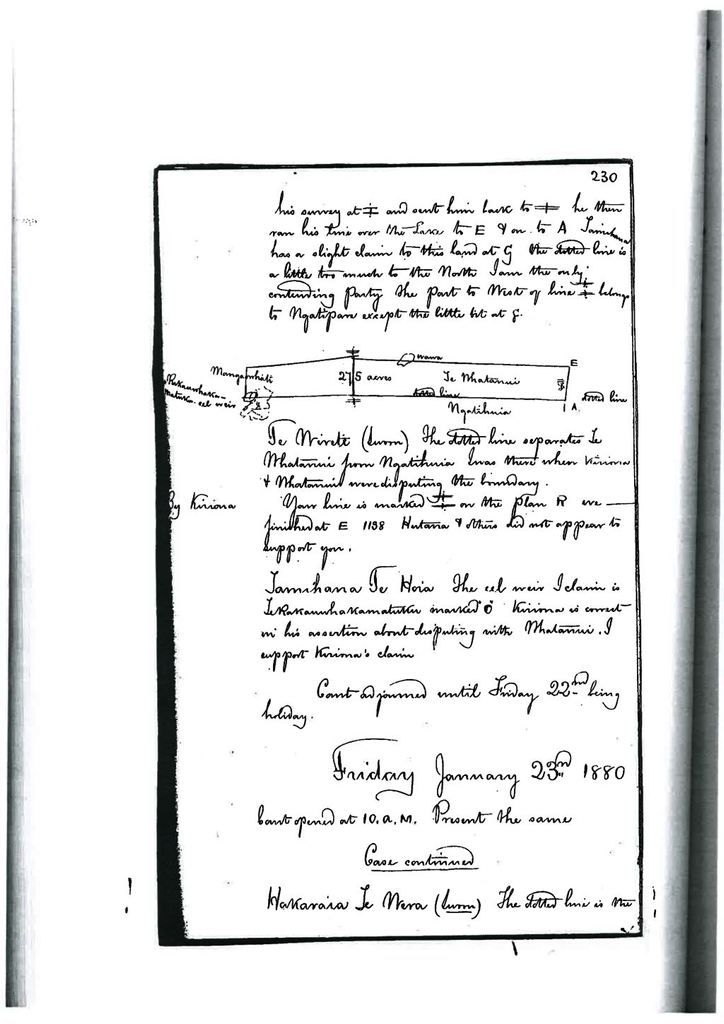 230
his survey at ‡ and sent him back to ‡ he then
ran his line over the Lake to E & on to A Tamihana
has a slight claim to this land at G the dotted line is
a little too much to the North I am the only
contending Party the Part to West of line ‡ belongs
to Ngatipare except the little bit at G.
Mangawhati
275 acres
wawa
Te Whatanui
E
Rakauwhaka-
matuku eel weir
dotted line
A dotted line
Ngatihuia
Te Wireti (Sworn) The dotted line separates Te
Whatanui from Ngatihuia I was there when Kiriona
& Whatanui were disputing the boundary.
By Kiriona
Your line is marked ‡ on the plan R we
finished at E 1138 Hutana & others did not appear to
support you.
Tamihana Te Hoia The eel weir I claim is
Te Rakauwhakamatuku marked O Kiriona is correct
in his assertion about disputing with Whatanui. I
support Kiriona's claim
Court adjourned until Friday 22nd being
holiday.
Friday January 23rd 1880
Court opened at 10. A.M. Present the same
Case continued
Hakaraia Te Wera (Sworn) The dotted line is the